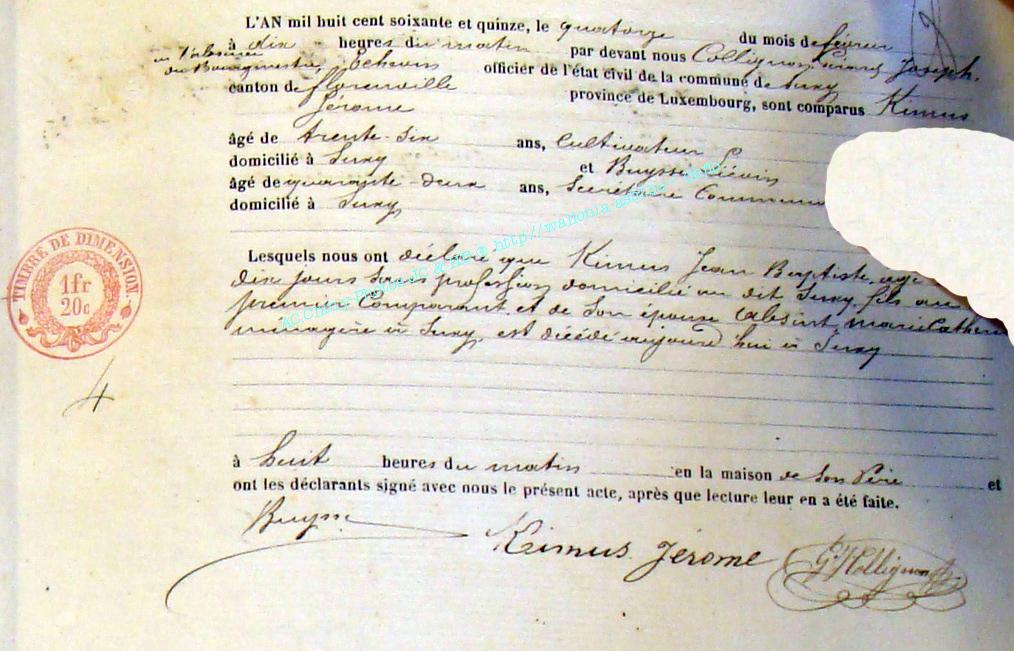 L'AN mil huit cent soixante et quinze, le quatorze du mois de février
à dix heures du matin par devant nous Collignon, Joseph,
en l'absence du Bourgmestre, Echevin officier de l'état civil de la commune de Suxy
canton de florenville province de Luxembourg, sont comparus Kimus
Jérome
âgé de trente-six ans, Cultivateur
domicilié à Suxy et Buysse Liévin
âgé de quarante-deux ans, Secrétaire Commun
domicilié à Suxy
Lesquels nous ont déclaré que Kimus Jean Baptiste, agé
dix jours sans profession domicilié au dit Suxy, fils du
premier Comparant et de Son épouse Marie Cathérine
ménagère à Suxy, est décédé aujourd'hui à Suxy
à huit heures du matin en la maison de Son Père et
ont les déclarants signé avec nous le présent acte, après que lecture leur en a été faite.
Buysse Kimus Jérome G. J. Collignon
TIMBRE DE DIMENSION
1fr
20c
4